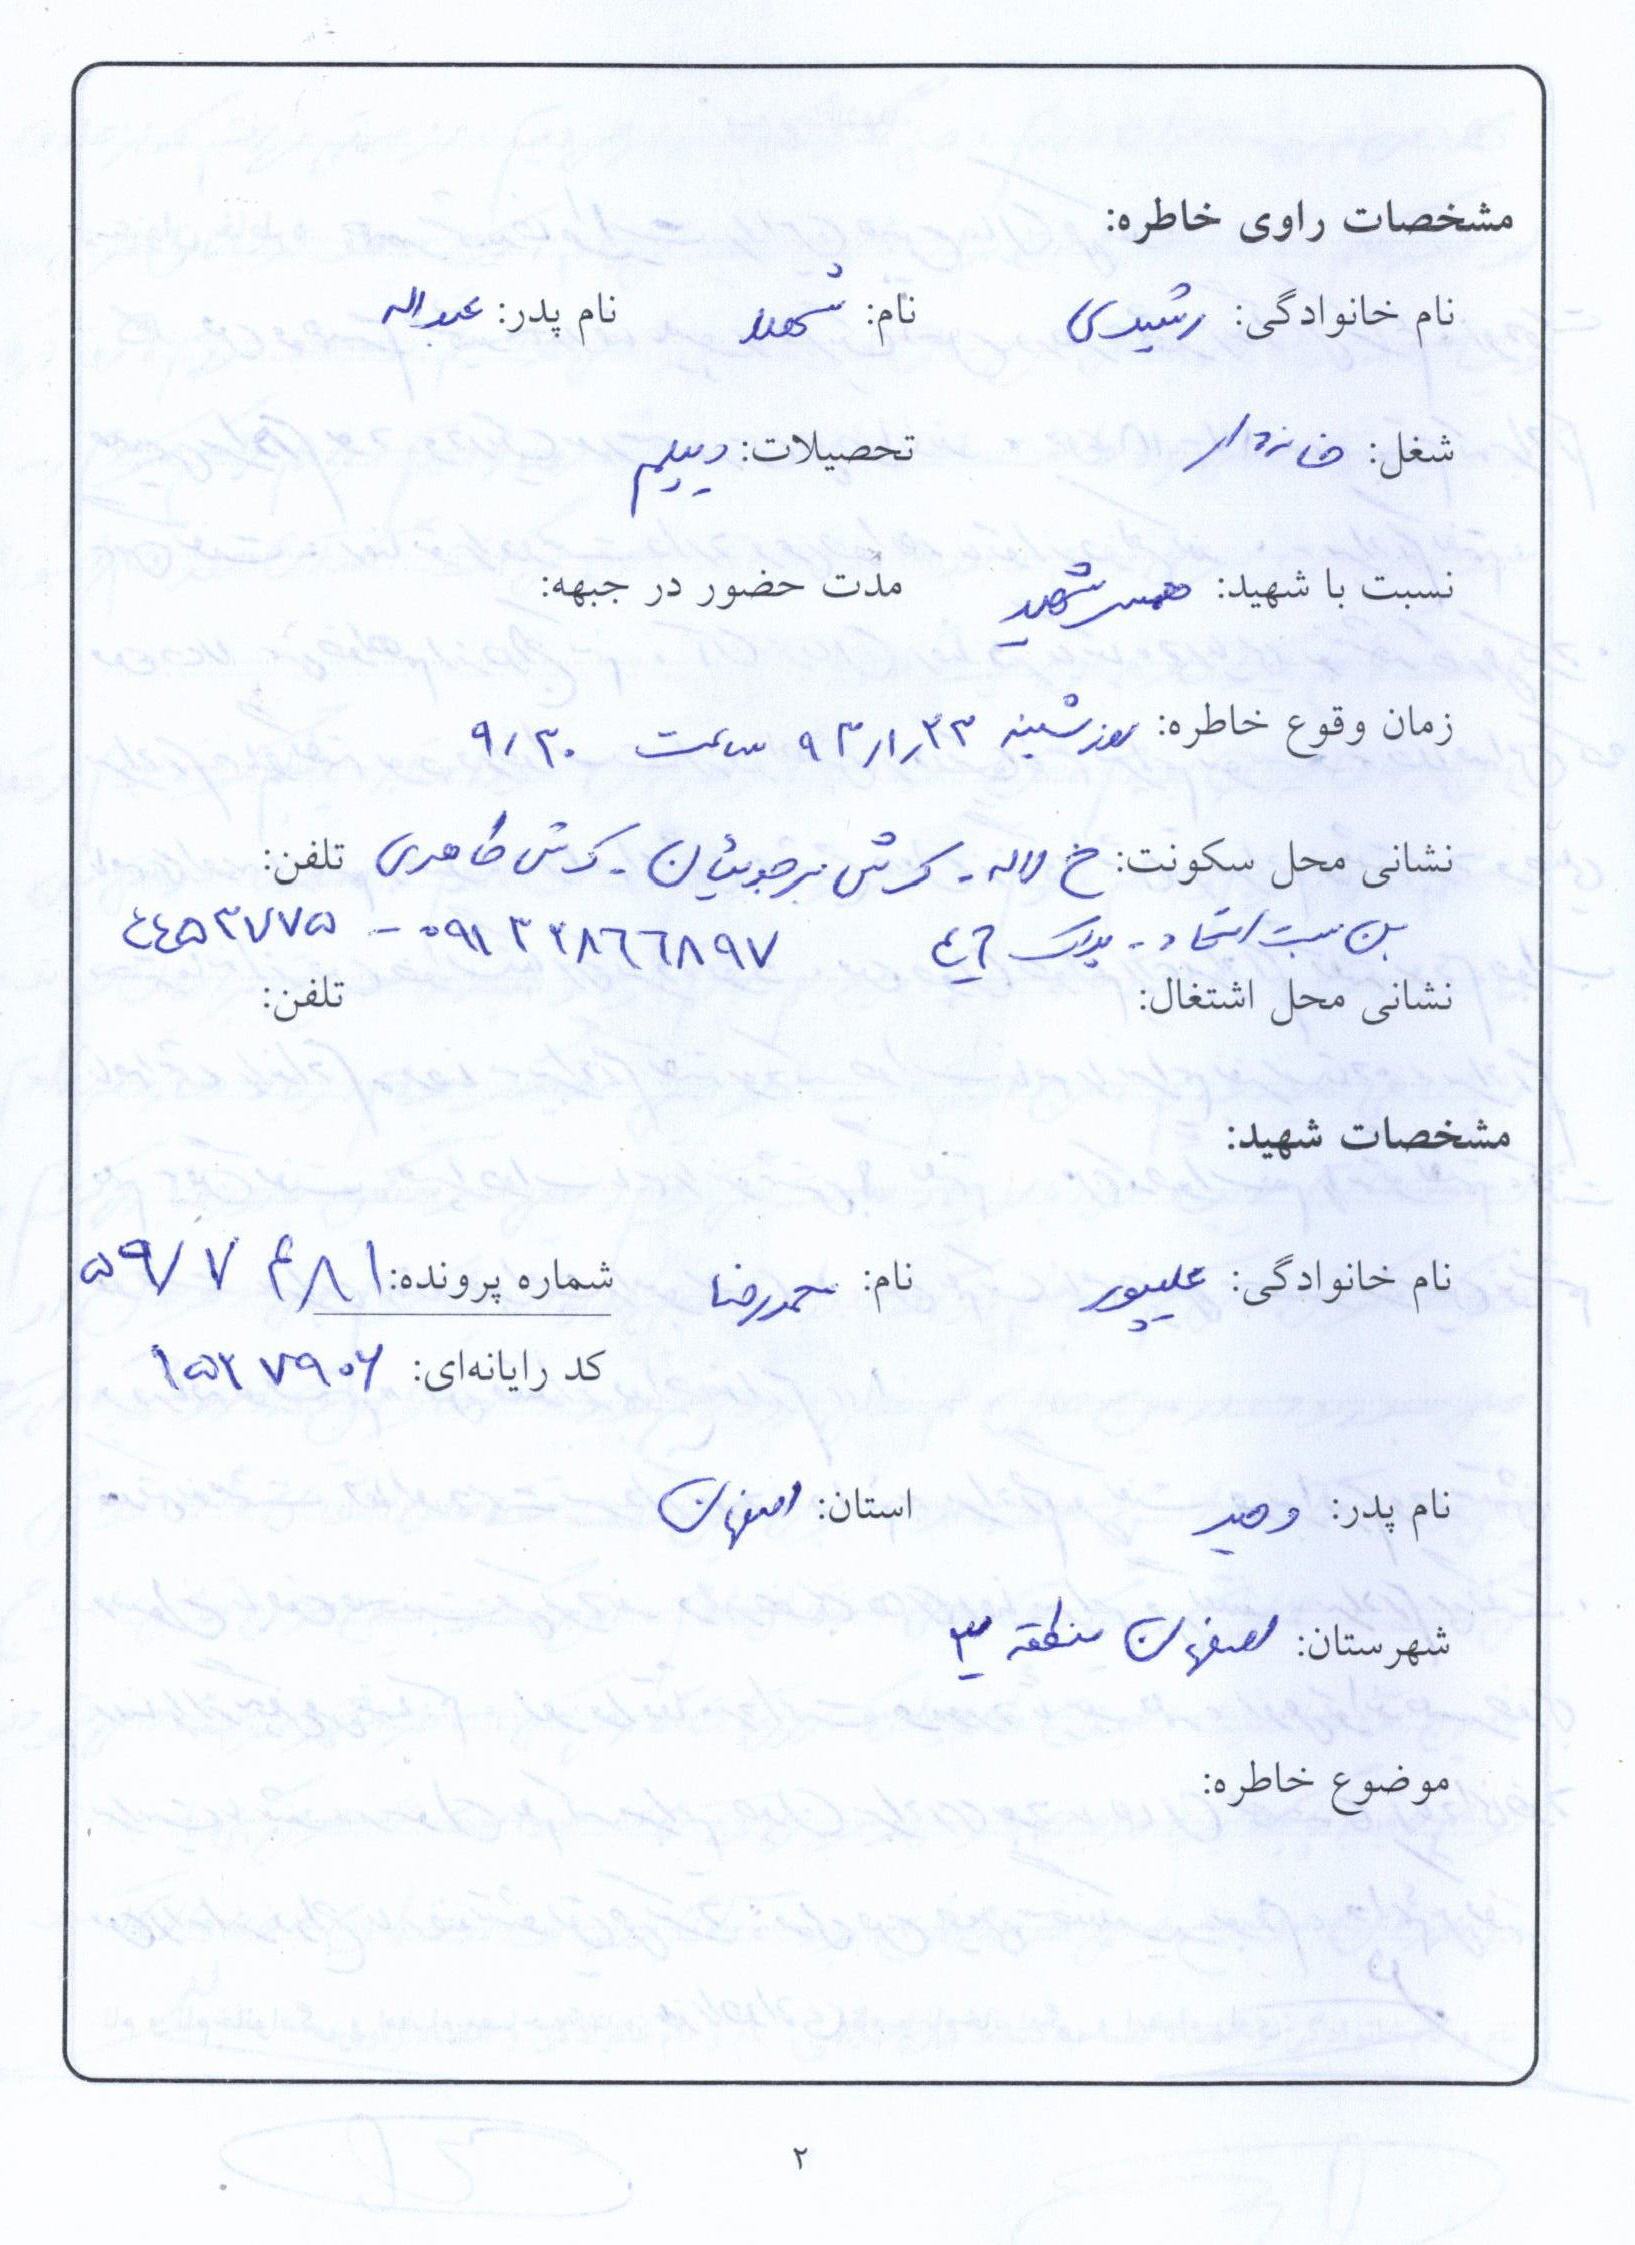 مشخصات راوی خاطره:
نام خانوادگی: رشیدی نام: شهلا نام پدر: عبداله
شغل: خانه‌دار تحصیلات: دیپلم
نسبت با شهید: همسر شهید مدت حضور در جبهه:
زمان وقوع خاطره: روز شنبه ۹۳/۱/۲۳ ساعت ۹/۳۰
نشانی محل سکونت: خ لاله - کوی - کوی طاهری تلفن:
بن بست اتحاد - پلاک ۴۶ ۰۹۱۳۳۸۶۶۸۹۷ - ۴۴۵۳۷۷۵
نشانی محل اشتغال: تلفن:
مشخصات شهید:
نام خانوادگی: علیپور نام: محمدرضا شماره پرونده: ۵۹/۷۴۸۱
کد رایانه‌ای: ۱۵۲۷۹۰۶
نام پدر: وحید استان: اصفهان
شهرستان: اصفهان منطقه ۳
موضوع خاطره:
۲